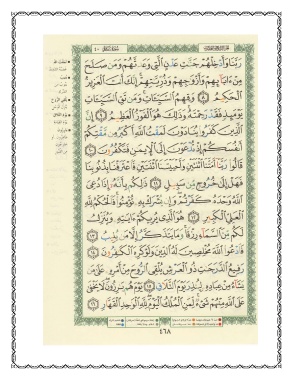 رَبَّنَا وَأَدْخِلْهُمْ جَنَّٰتِ عَدْنٍ ٱلَّتِى وَعَدتَّهُمْ وَمَن صَلَحَ
مِنْ ءَابَآئِهِمْ وَأَزْوَٰجِهِمْ وَذُرِّيَّٰتِهِمْ إِنَّكَ أَنتَ ٱلْعَزِيزُ
ٱلْحَكِيمُ ٨ وَقِهِمُ ٱلسَّيِّـَٔاتِ وَمَن تَقِ ٱلسَّيِّـَٔاتِ
يَوْمَئِذٍ فَقَدْ رَحِمْتَهُۥ وَذَٰلِكَ هُوَ ٱلْفَوْزُ ٱلْعَظِيمُ ٩ إِنَّ
ٱلَّذِينَ كَفَرُوا۟ يُنَادَوْنَ لَمَقْتُ ٱللَّهِ أَكْبَرُ مِن مَّقْتِكُمْ
أَنفُسَكُمْ إِذْ تُدْعَوْنَ إِلَى ٱلْإِيمَٰنِ فَتَكْفُرُونَ ١٠
قَالُوا۟ رَبَّنَآ أَمَتَّنَا ٱثْنَتَيْنِ وَأَحْيَيْتَنَا ٱثْنَتَيْنِ فَٱعْتَرَفْنَا بِذُنُوبِنَا
فَهَلْ إِلَىٰ خُرُوجٍ مِّن سَبِيلٍ ١١ ذَٰلِكُم بِأَنَّهُۥٓ إِذَا دُعِىَ
ٱللَّهُ وَحْدَهُۥ كَفَرْتُمْ وَإِن يُشْرَكْ بِهِۦ تُؤْمِنُوا۟ فَٱلْحُكْمُ لِلَّهِ
ٱلْعَلِىِّ ٱلْكَبِيرِ ١٢ هُوَ ٱلَّذِى يُرِيكُمْ ءَايَٰتِهِۦ وَيُنَزِّلُ
لَكُم مِّنَ ٱلسَّمَآءِ رِزْقًا وَمَا يَتَذَكَّرُ إِلَّا مَن يُنِيبُ ١٣
فَٱدْعُوا۟ ٱللَّهَ مُخْلِصِينَ لَهُ ٱلدِّينَ وَلَوْ كَرِهَ ٱلْكَٰفِرُونَ ١٤
رَفِيعُ ٱلدَّرَجَٰتِ ذُو ٱلْعَرْشِ يُلْقِى ٱلرُّوحَ مِنْ أَمْرِهِۦ عَلَىٰ مَن
يَشَآءُ مِنْ عِبَادِهِۦ لِيُنذِرَ يَوْمَ ٱلتَّلَاقِ ١٥ يَوْمَ هُم بَٰرِزُونَ لَا يَخْفَىٰ
عَلَى ٱللَّهِ مِنْهُمْ شَىْءٌ لِّمَنِ ٱلْمُلْكُ ٱلْيَوْمَ لِلَّهِ ٱلْوَٰحِدِ ٱلْقَهَّارِ ١٦
٤٦٨